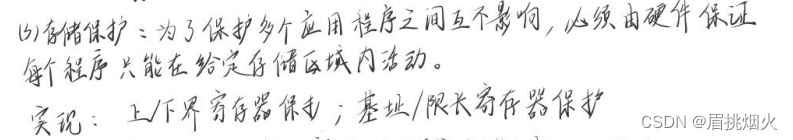 (5)存储保护：为了保护多个应用程序之间互不影响，必须由硬件保证
每个程序只能在给定存储区域内活动。
实现：上/下界寄存器保护；基址/限长寄存器保护
CSDN @眉挑烟火